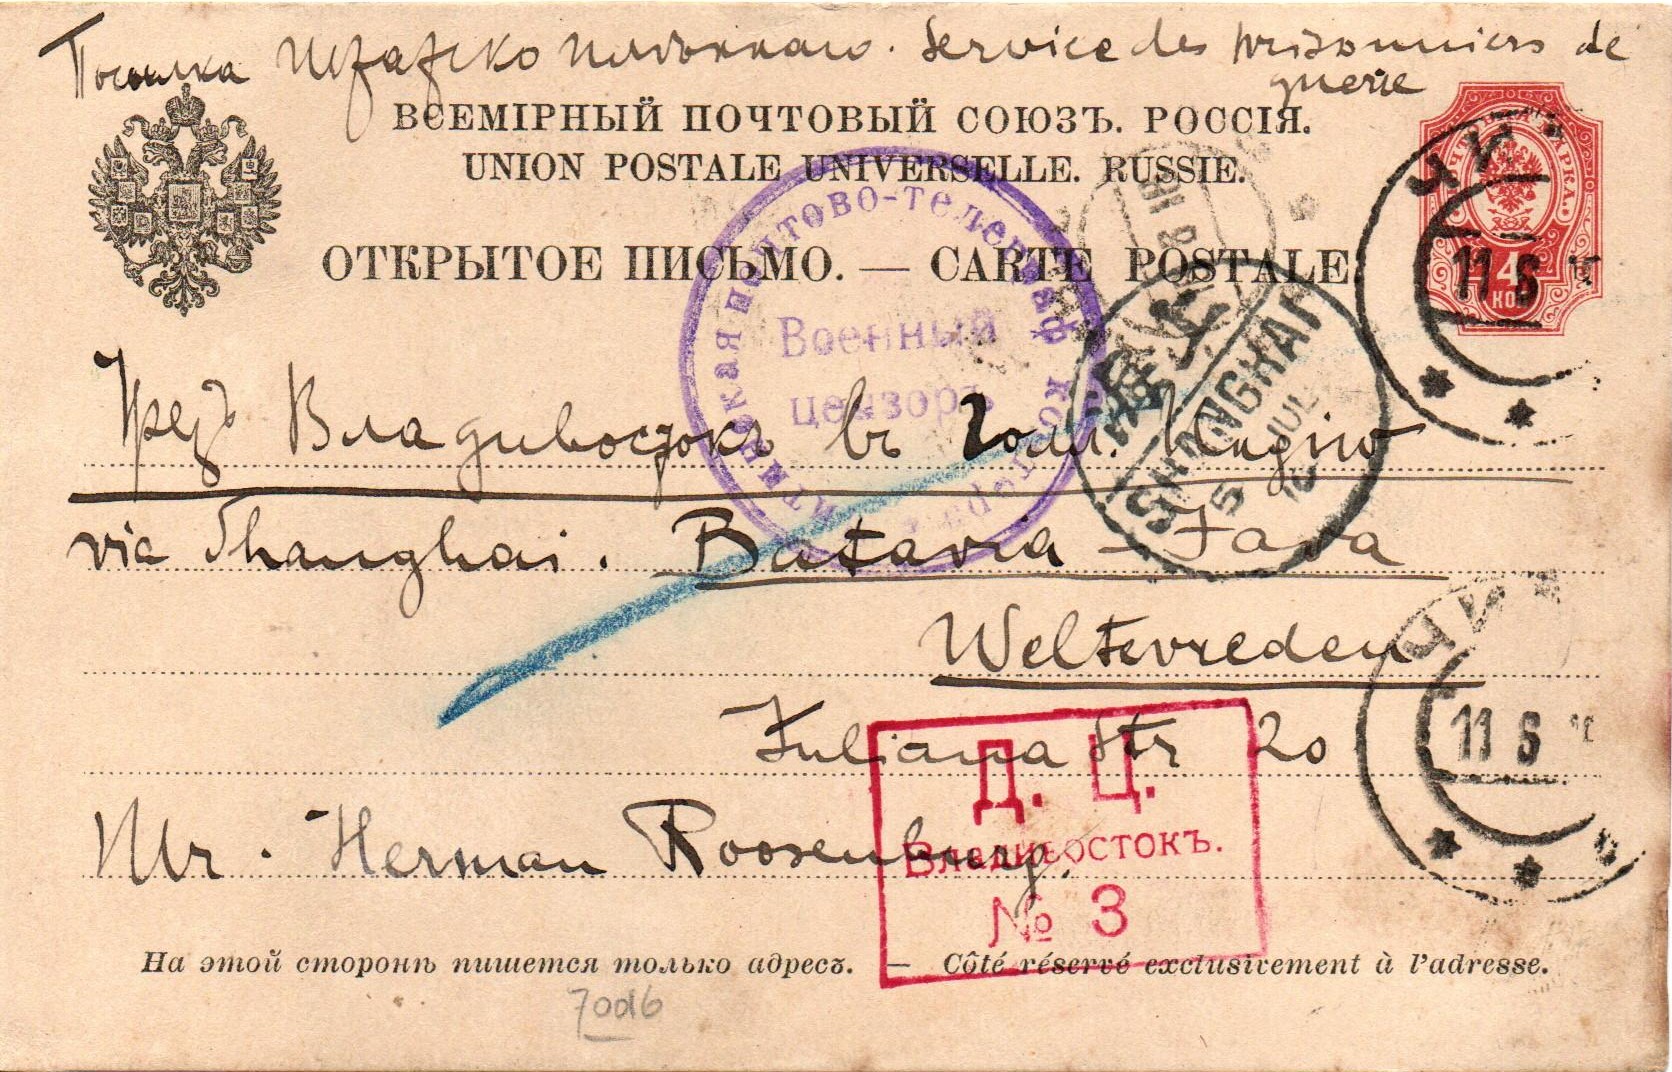 Посылка
Service des prisonniers de
guerre
ВСЕМІРНЫЙ ПОЧТОВЫЙ СОЮЗЪ. РОССІЯ.
UNION POSTALE UNIVERSELLE. RUSSIE.
ОТКРЫТОЕ ПИСЬМО. — CARTE POSTALE
4
КОП
ЧИ
11 6
Военный
цензоръ
SHANGHAI
5 JUL
16
Чрезъ Владивостокъ въ Голл. Индію
via Shanghai. Batavia - Java
Weltevreden
Juliana Str 20
Mr. Herman Roosenburg.
ЧИ
11 6
Д. Ц.
Владивостокъ.
№ 3
На этой сторонѣ пишется только адресъ. — Côté réservé exclusivement à l'adresse.